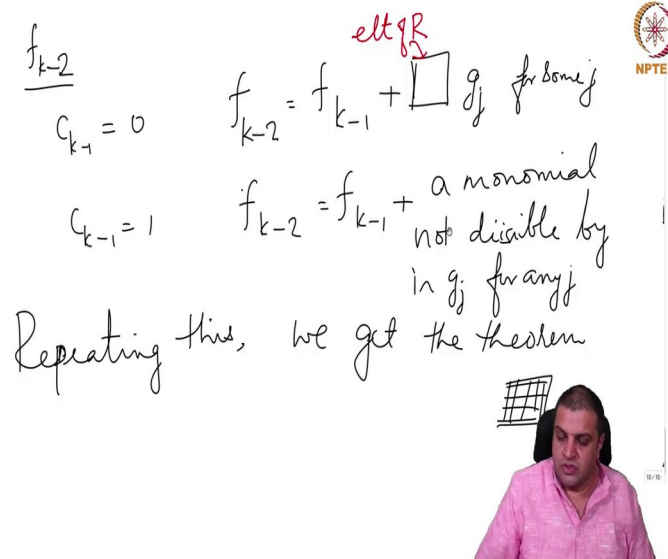 elt of R
f_{k-2}
f_{k-2} = f_{k-1} + □ g_j for some j
c_{k-1} = 0
c_{k-1} = 1
f_{k-2} = f_{k-1} + a monomial
not divisible by
in g_j for any j
Repeating this, we get the theorem
NPTE
10 / 10